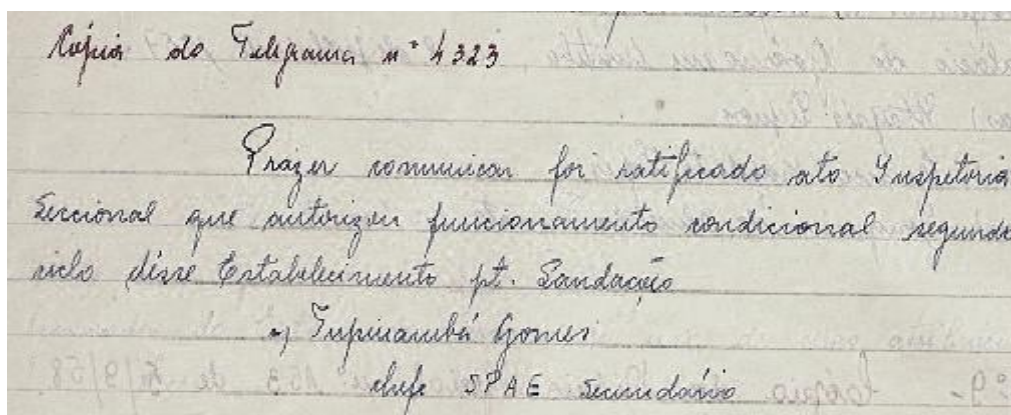 Cópia do Telegrama nº 4323
Prazer comunicar foi ratificado ato Inspetoria
Seccional que autorizou funcionamento condicional segundo
ciclo dêsse Estabelecimento pt. Saudação
a) Tupinambá Gomes
chefe SPAE Secundário